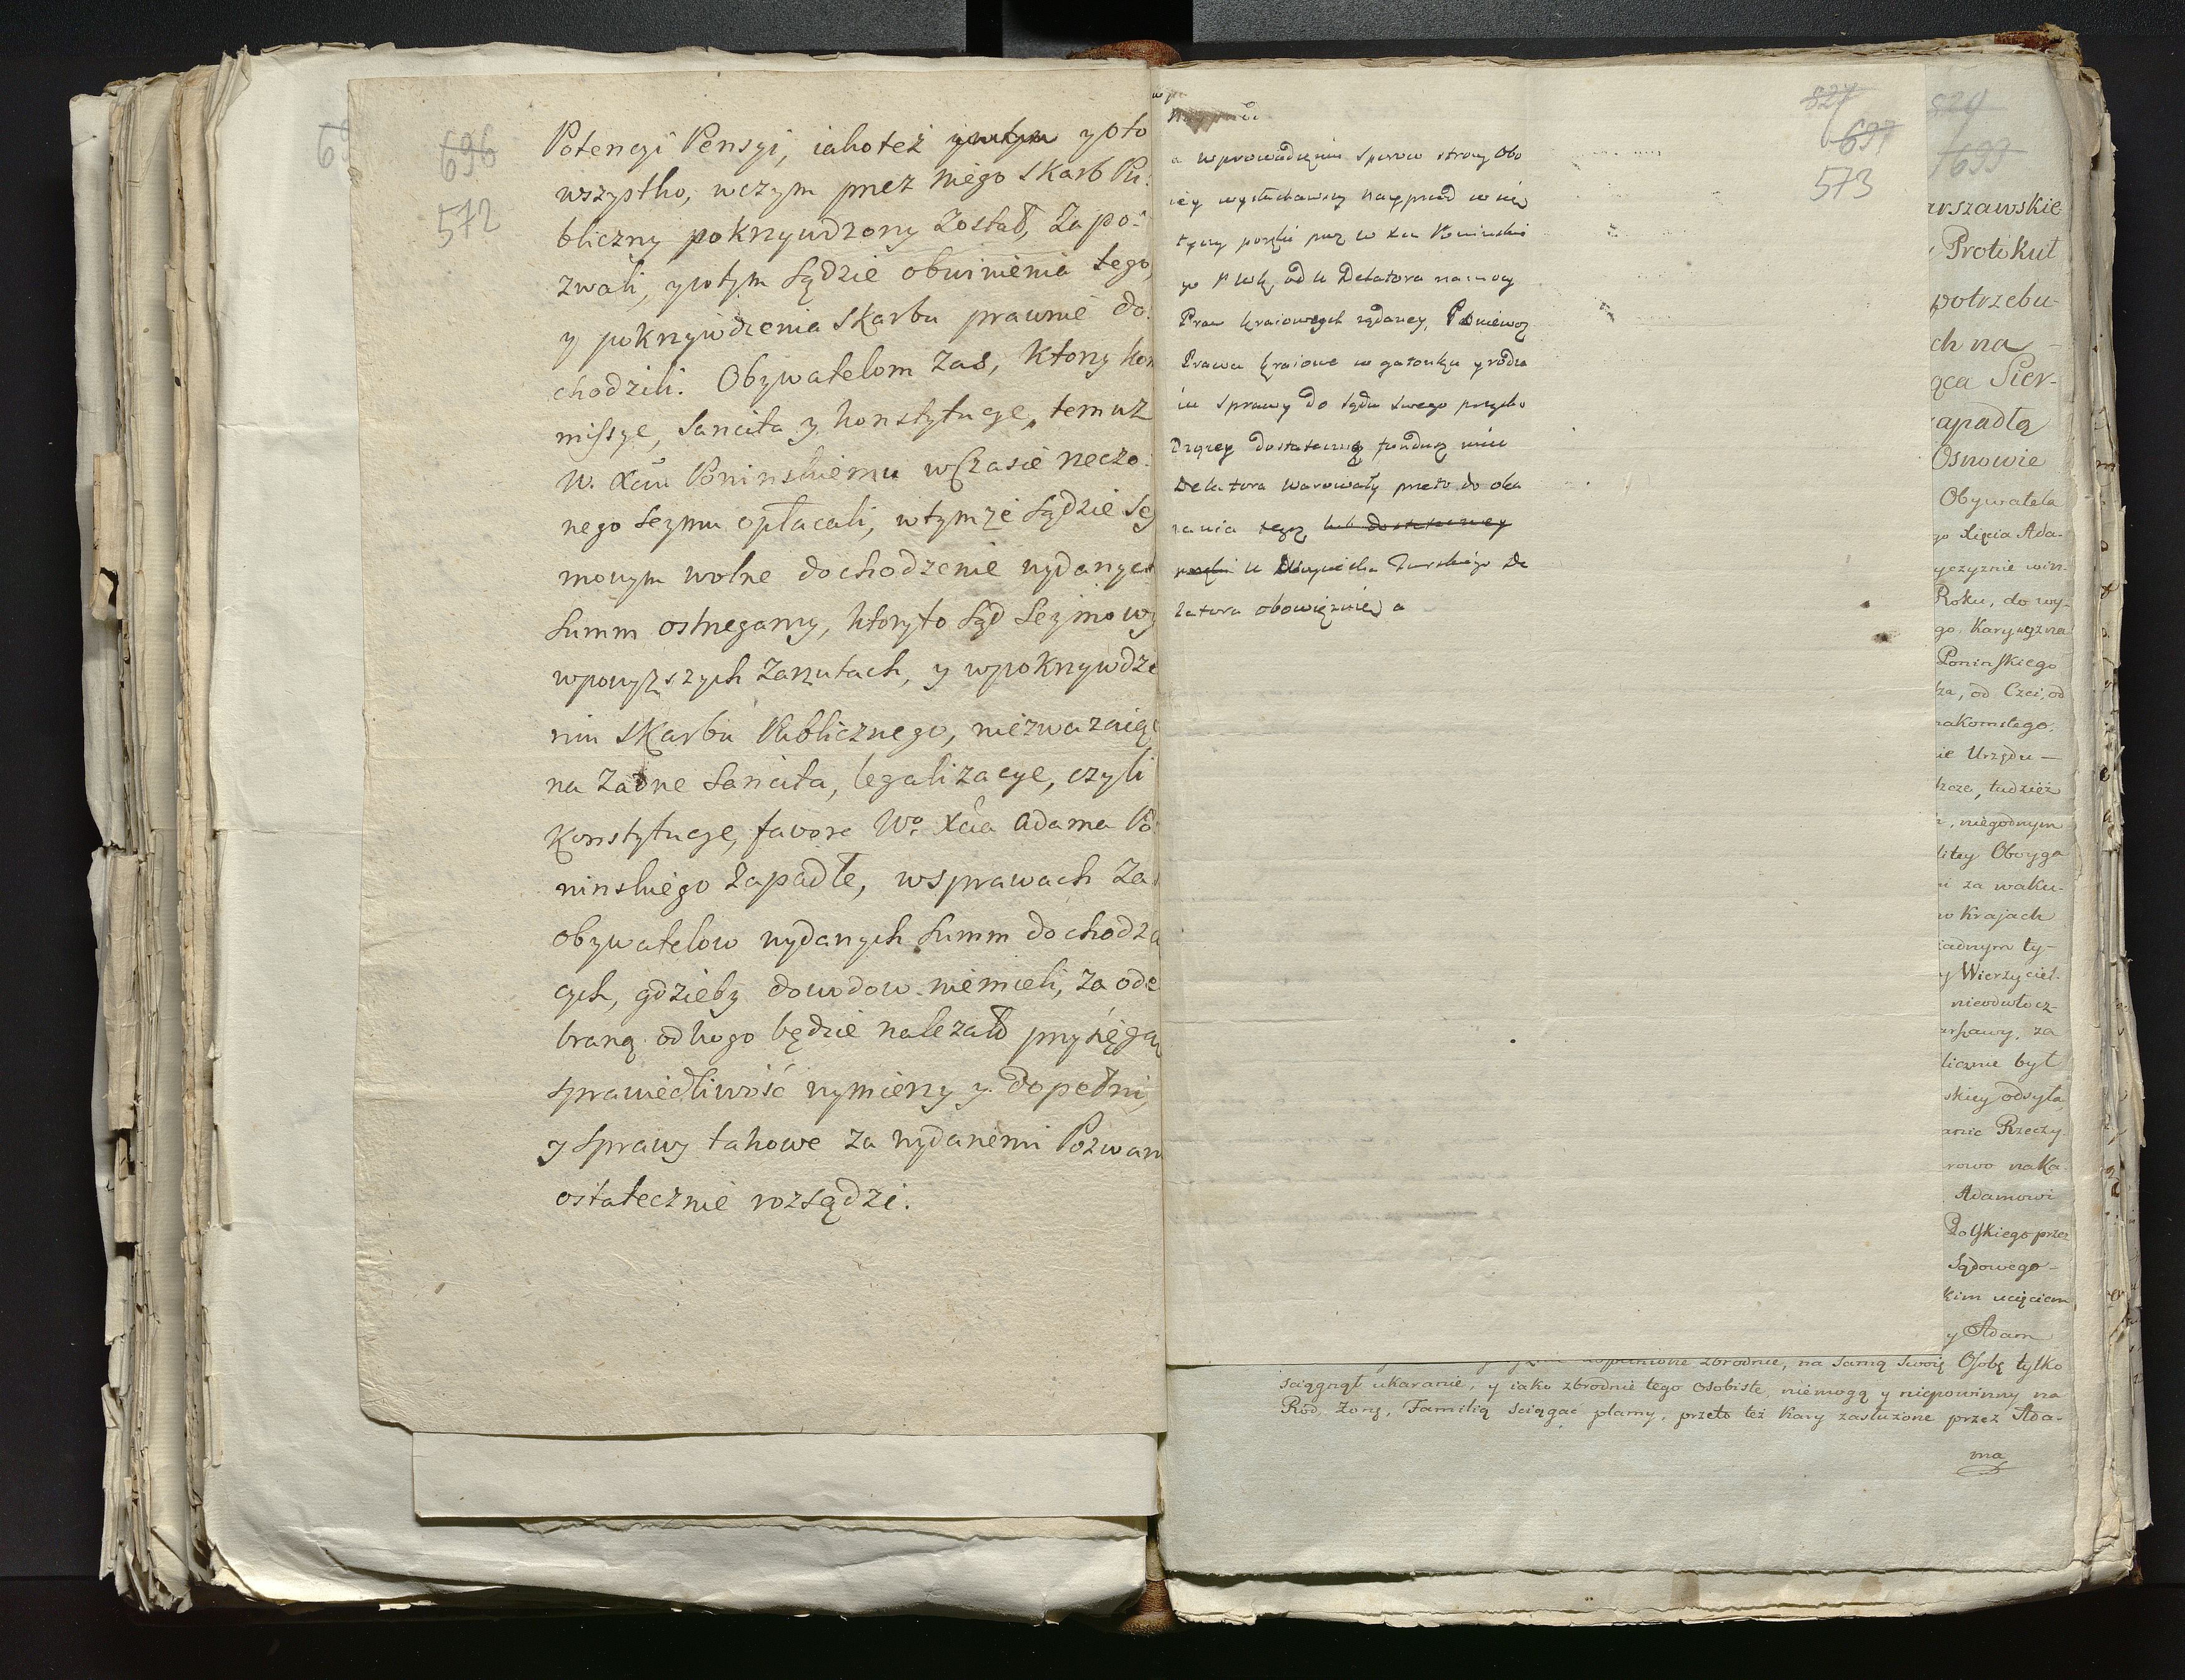 696
572
Potencyi Pensyi, iako też y oto
wszystko, w czym przez niego Skarb Pu:
bliczny pokrzywdzony został, zapo:
zwali, y w tym Sądzie obwinienia tego,
y pokrzywdzenia Skarbu prawnie do:
chodzili. Obywatelom zaś, którzy kom
missye, Sancita y konstytucye, temuż
W. Xciu Ponińskiemu w Czasie rzeczo:
nego Seymu opłacali, w tymże Sądzie Sey
mowym wolne dochodzenie wydanych
Summ ostrzegamy, który to Sąd Seymowy
w powyższych zarzutach, y w pokrzywdze
niu Skarbu Publicznego, niezważaiąc
na żadne Sancita, legalizacye, czyli
Konstytucye, favore Wo. Xcia Adama Po
ninskiego zapadłe, w sprawach zaś
obywatelow wydanych Summ dochodzą
cych, gdzieby dowodow niemieli, za ode
braną od kogo będzie należało przysięgą
sprawiedliwość wymierzy y dopełni,
y Sprawy takowe za wydanemi Pozwam
ostatecznie rozsądzi.
827
697
573
a wprowadzeniu Sporow strony Obo
iey wysłuchawszy nayprzod w ma
teryi poręki przez W Xcia Poninskie
go od U Delatora na mocy
Praw kraiowych żądaney, Ponieważ
Prawa kraiowe w gatonku y rodza
iu Sprawy do Sądu Swego przycho
dzącey dostateczny fundusz mieć
Delatora warowały przeto do oka
zania tego lub dostateczney
poręki U Woyciecha Turskiego De
latora obowięzuie a
829
699
arszawskie
Protokuł
potrzebu-
ch na -
ąca Sier-
apadłą
Osnowie
Obywatela
go Xięcia Ada-
yczyznie win-
Roku, do wy-
go, Kary węzna
Poninskiego
za, od Czci, od
nakomitego.
ie Urzędu -
dzcze, tudzież
, niegodnym
litey Oboyga
i za waku-
w Krajach
żadnym ty-
y Wierzyciel.
nieodwłocz-
arszawy, za
licznie był
skiey odsyła
anie Rzeczy-
rowo naka-
Adamowi
Polskiego przez
Sądowego -
kim ucięciem
y Adam
dopełnione zbrodnie, na samą swoię Osobę tylko
sciągnął ukaranie, y iako zbrodnie tego osobiste, niemogą y niepowinny na
Rod, Zonę, Familią sciągać plamy, przeto też Kary zasłużone przez Ada-
ma